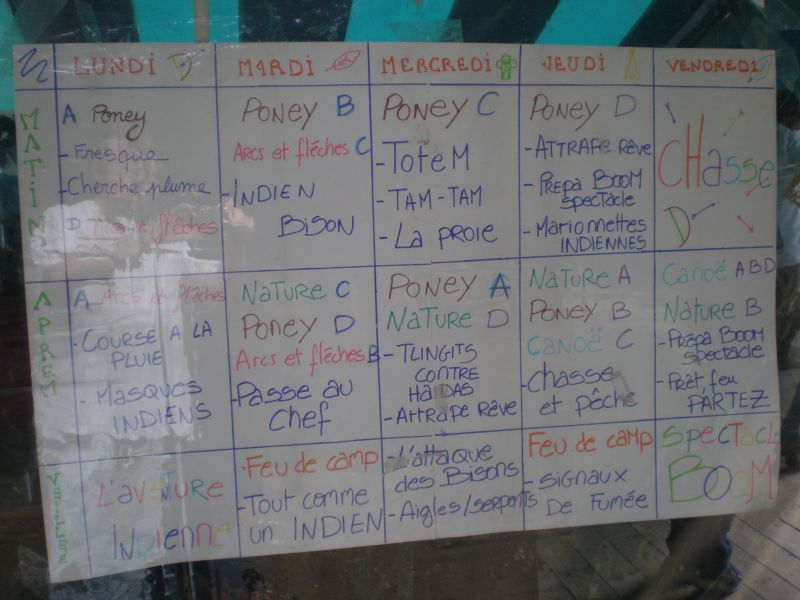 LUNDI
MARDI
MERCREDI
JEUDI
VENDREDI
MATIN
A Poney
- Fresque
- Cherche plume
D Tir et flêches
PONEY B
ARCS et flêches C
- INDIEN
BISON
PONEY C
- ToTeM
- TAM-TAM
- La PROIE
PONEY D
- ATTRAPE Rêve
- PREPA BOOM
spectacle
- Marionnettes
INDIENNES
CHasse
APREM
A Arcs et flêches
- COURSE A LA
PLUIE
- MASQUES
INDIENS
NaTURe C
PONEY D
ARCS et flêches B
- Passe au
Chef
PONEY A
NaTURe D
- TLINGITS
CONTRE
HAIDAS
- ATTRAPE Rêve
NaTURE A
PONEY B
CANOË C
- Chasse
et pêche
CANOË ABD
NaTURE B
- PRÉPA BOOM
spectacle
- Prêt, feu
PARTEZ
VEILLEE
L'aVeNTURe
INDIENNe
- Feu de camp
- Tout comme
un INDIEN
- L'attaque
des Bisons
- Aigles/serpents
Feu de camp
- SIGNAUX
De Fumée
SpecTacle
BOOM